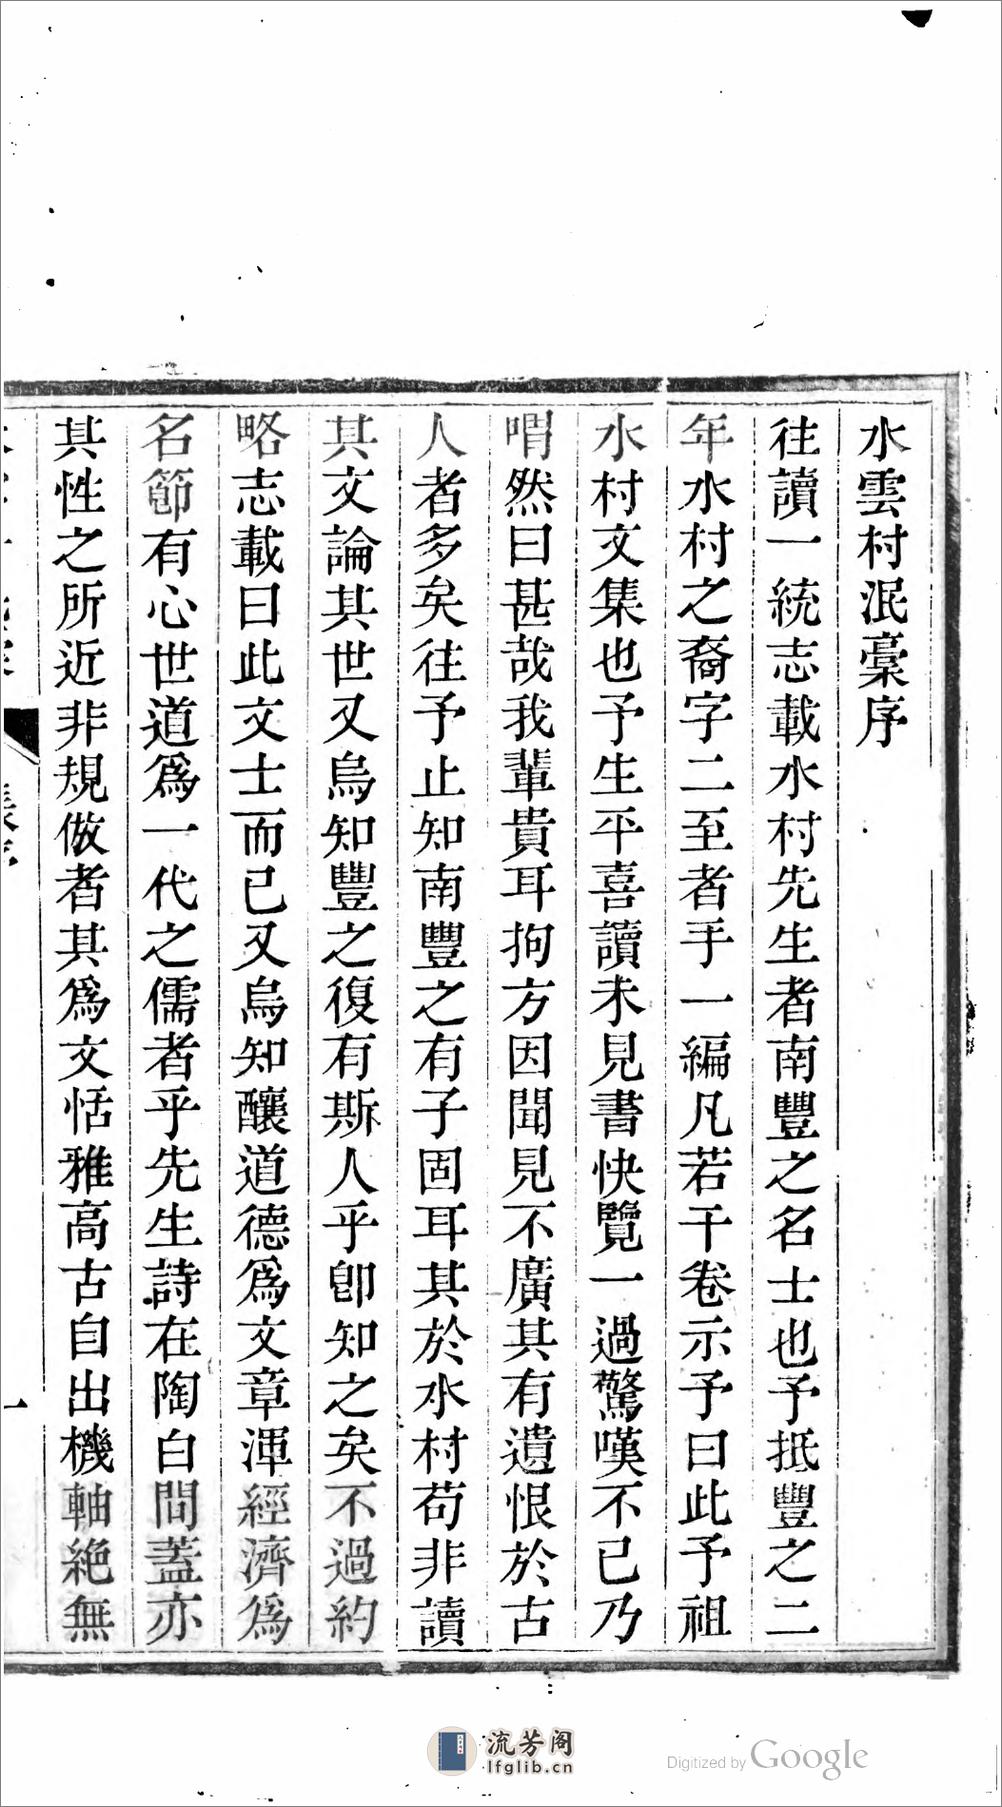 水雲村泯槀序
往讀一統志載水村先生者南豐之名士也予抵豐之二
年水村之裔字二至者手一編凡若干卷示予曰此予祖
水村文集也予生平喜讀未見書快覽一過驚嘆不已乃
喟然曰甚哉我輩貴耳拘方因聞見不廣其有遺恨於古
人者多矣往予止知南豐之有子固耳其於水村苟非讀
其文論其世又烏知豐之復有斯人乎卽知之矣不過約
略志載曰此文士而已又烏知釀道德爲文章渾經濟爲
名節有心世道爲一代之儒者乎先生詩在陶白間蓋亦
其性之所近非規倣者其爲文恬雅高古自出機軸絶無
一
流芳阁
lfglib.cn
Digitized by Google